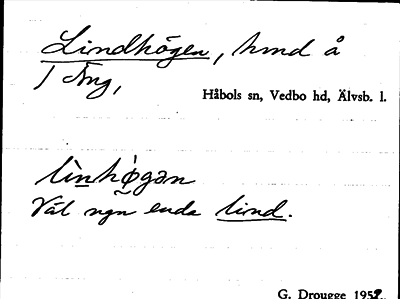 Lindhögen, hmd å
1 Äng,
Håbols sn, Vedbo hd, Älvsb. l.
lìnhø̀gən
Väl ngn enda lind.
G. Drougge 1952.